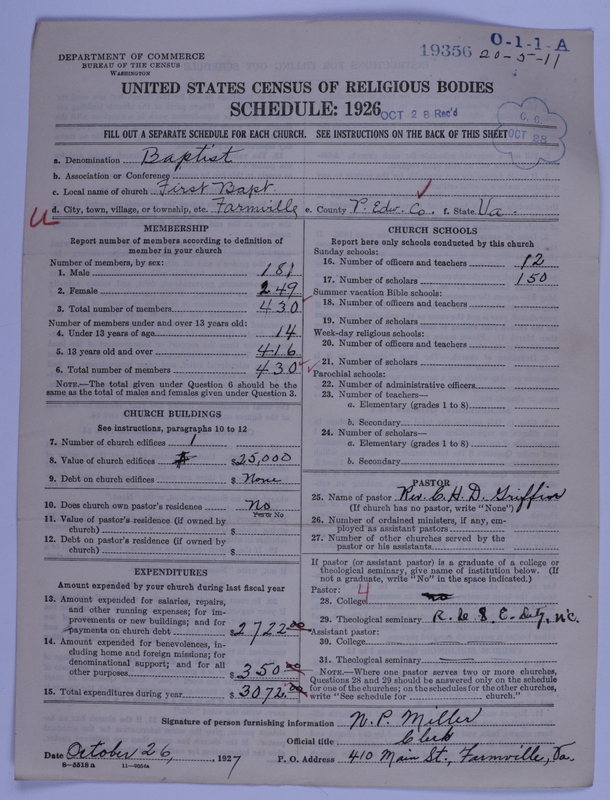 19356
O-1-1-A
20-5-11
DEPARTMENT OF COMMERCE
BUREAU OF THE CENSUS
WASHINGTON
UNITED STATES CENSUS OF RELIGIOUS BODIES
SCHEDULE: 1926
OCT 28 Rec'd
C. C.
OCT 28
FILL OUT A SEPARATE SCHEDULE FOR EACH CHURCH. SEE INSTRUCTIONS ON THE BACK OF THIS SHEET
a. Denomination Baptist
b. Association or Conference
c. Local name of church First Bapt.
d. City, town, village, or township, etc. Farmville e. County P. Edw. Co. f. State Va.
MEMBERSHIP
Report number of members according to definition of
member in your church
Number of members, by sex:
1. Male 181
2. Female 249
3. Total number of members 430
Number of members under and over 13 years old:
4. Under 13 years of age 14
5. 13 years old and over 416
6. Total number of members 430
NOTE.—The total given under Question 6 should be
same as the total of males and females given under Question 3.
CHURCH BUILDINGS
See instructions, paragraphs 10 to 12
7. Number of church edifices 1
8. Value of church edifices $25,000
9. Debt on church edifices $ None
10. Does church own pastor's residence No
Yes or No
11. Value of pastor's residence (if owned by
church) $
12. Debt on pastor's residence (if owned by
church) $
EXPENDITURES
Amount expended by your church during last fiscal year
13. Amount expended for salaries, repairs,
and other running expenses; for im-
provements or new buildings; and for
payments on church debt $2722.00
14. Amount expended for benevolences, in-
cluding home and foreign missions; for
denominational support; and for all
other purposes $350.00
15. Total expenditures during year $3072.00
CHURCH SCHOOLS
Report here only schools conducted by this church
Sunday schools:
16. Number of officers and teachers 12
17. Number of scholars 150
Summer vacation Bible schools:
18. Number of officers and teachers
19. Number of scholars
Week-day religious schools:
20. Number of officers and teachers
21. Number of scholars
Parochial schools:
22. Number of administrative officers
23. Number of teachers—
a. Elementary (grades 1 to 8)
b. Secondary
24. Number of scholars—
a. Elementary (grades 1 to 8)
b. Secondary
PASTOR
25. Name of pastor Rev. C. H. D. Griffin
(If church has no pastor, write "None")
26. Number of ordained ministers, if any, em-
ployed as assistant pastors
27. Number of other churches served by the
pastor or his assistants
If pastor (or assistant pastor) is a graduate of a college or
theological seminary, give name of institution below. (If
not a graduate, write "No" in the space indicated.)
Pastor:
28. College 4 no
29. Theological seminary N.C.
Assistant pastor:
30. College
31. Theological seminary
NOTE.—Where one pastor serves two or more churches,
Questions 28 and 29 should be answered only on the schedule
for one of the churches; on the schedules for the other churches,
write "See schedule for church."
Signature of person furnishing information N. P. Miller
Official title Clerk
Date October 26, 1927 P. O. Address 410 Main St., Farmville, Va.
8-5518a 11-9554a